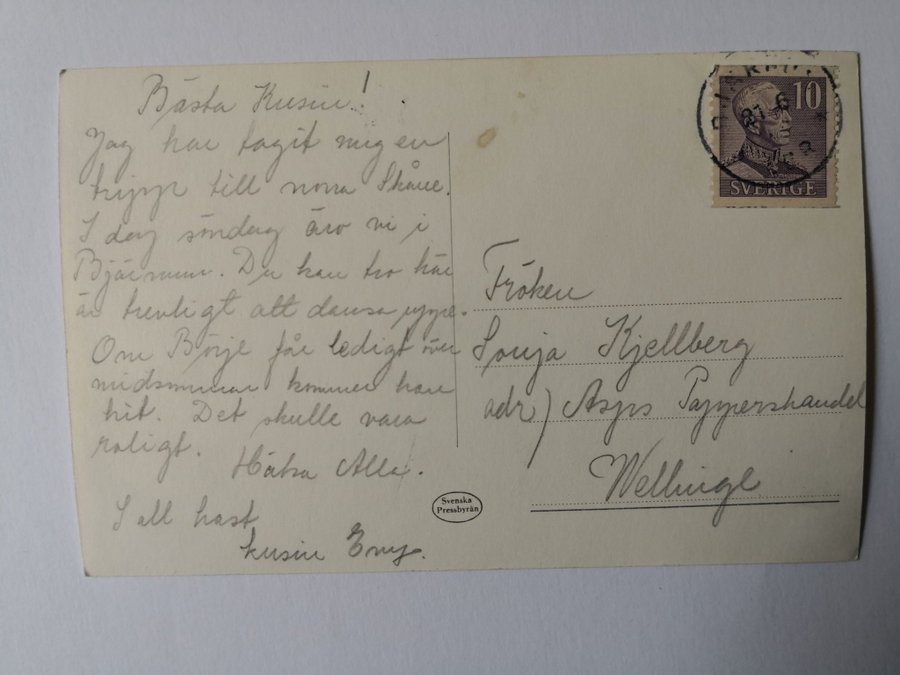 Bästa Kusin!
Jag har tagit mig en
tripp till norra Skåne.
I dag söndag äro vi i
Bjärnum. Du kan tro här
är trevligt att dansa uppe.
Om Börje får ledigt över
midsommar kommer han
hit. Det skulle vara
roligt.
Hälsa Alla.
I all hast
kusin Eny.
10
SVERIGE
21 6
Fröken
Sonja Kjellberg
adr) Asps Pappershandel
Wellinge
Svenska
Pressbyrån